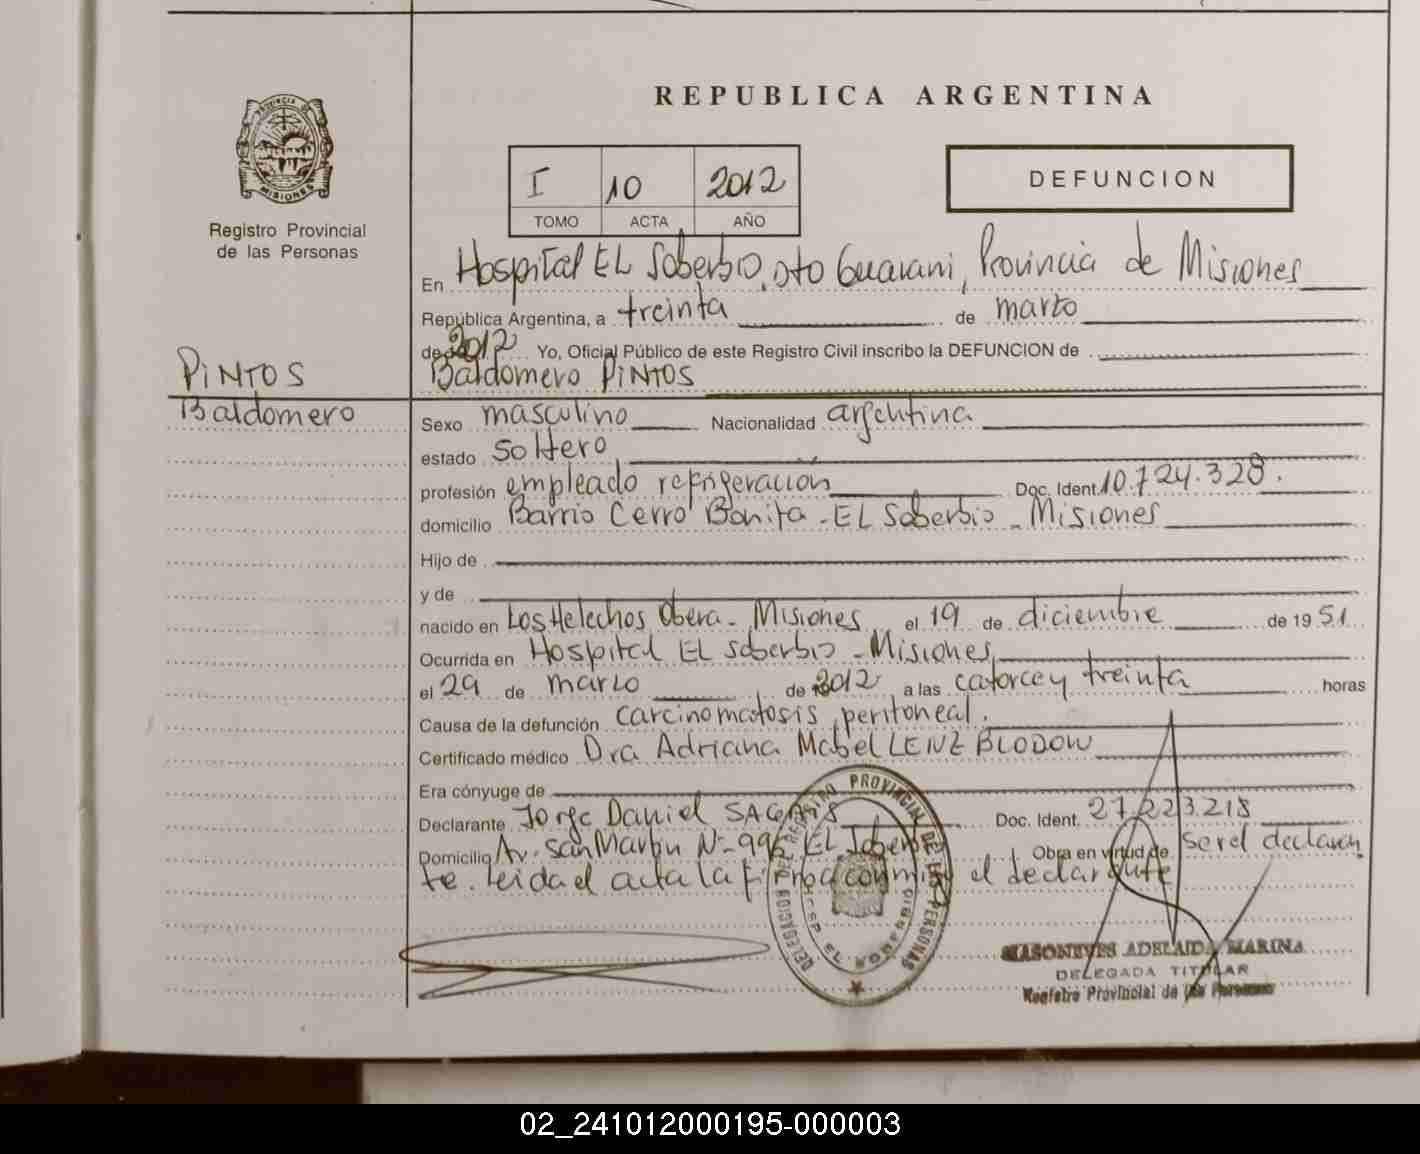 REPUBLICA ARGENTINA
I 10 2012
TOMO ACTA AÑO
DEFUNCION
PROVINCIA DE
MISIONES
Registro Provincial
de las Personas
PINTOS
Baldomero
En Hospital EL Soberbio, Dto Guarani, Provincia de Misiones
República Argentina, a treinta de marzo
de 2012 Yo, Oficial Público de este Registro Civil inscribo la DEFUNCION de
Baldomero PINTOS
Sexo masculino Nacionalidad argentina
estado soltero
profesión empleado refrigeración Doc. Ident. 10.724.328.
domicilio Barrio Cerro Bonito - EL Soberbio - Misiones
Hijo de
y de
nacido en Los Helechos Obera - Misiones el 19 de diciembre de 1951
Ocurrida en Hospital EL Soberbio - Misiones
el 29 de marzo de 2012 a las catorce y treinta horas
Causa de la defunción carcinomatosis peritoneal.
Certificado médico Dra Adriana Mabel LENZ BLODOW
Era cónyuge de
Declarante Jorge Daniel Doc. Ident. 27.223.218
Domicilio Av. San Martin Nº 996 EL Soberbio Obra en virtud de ser el declaran
te. Leida el acta la firma conmigo el declarante
DELEGACION DEL REGISTRO PROVINCIAL DE LAS PERSONAS
HOSP EL SOBERBIO
ADELAIDA MARINA
DELEGADA TITULAR
Registro Provincial de las Personas
02_241012000195-000003